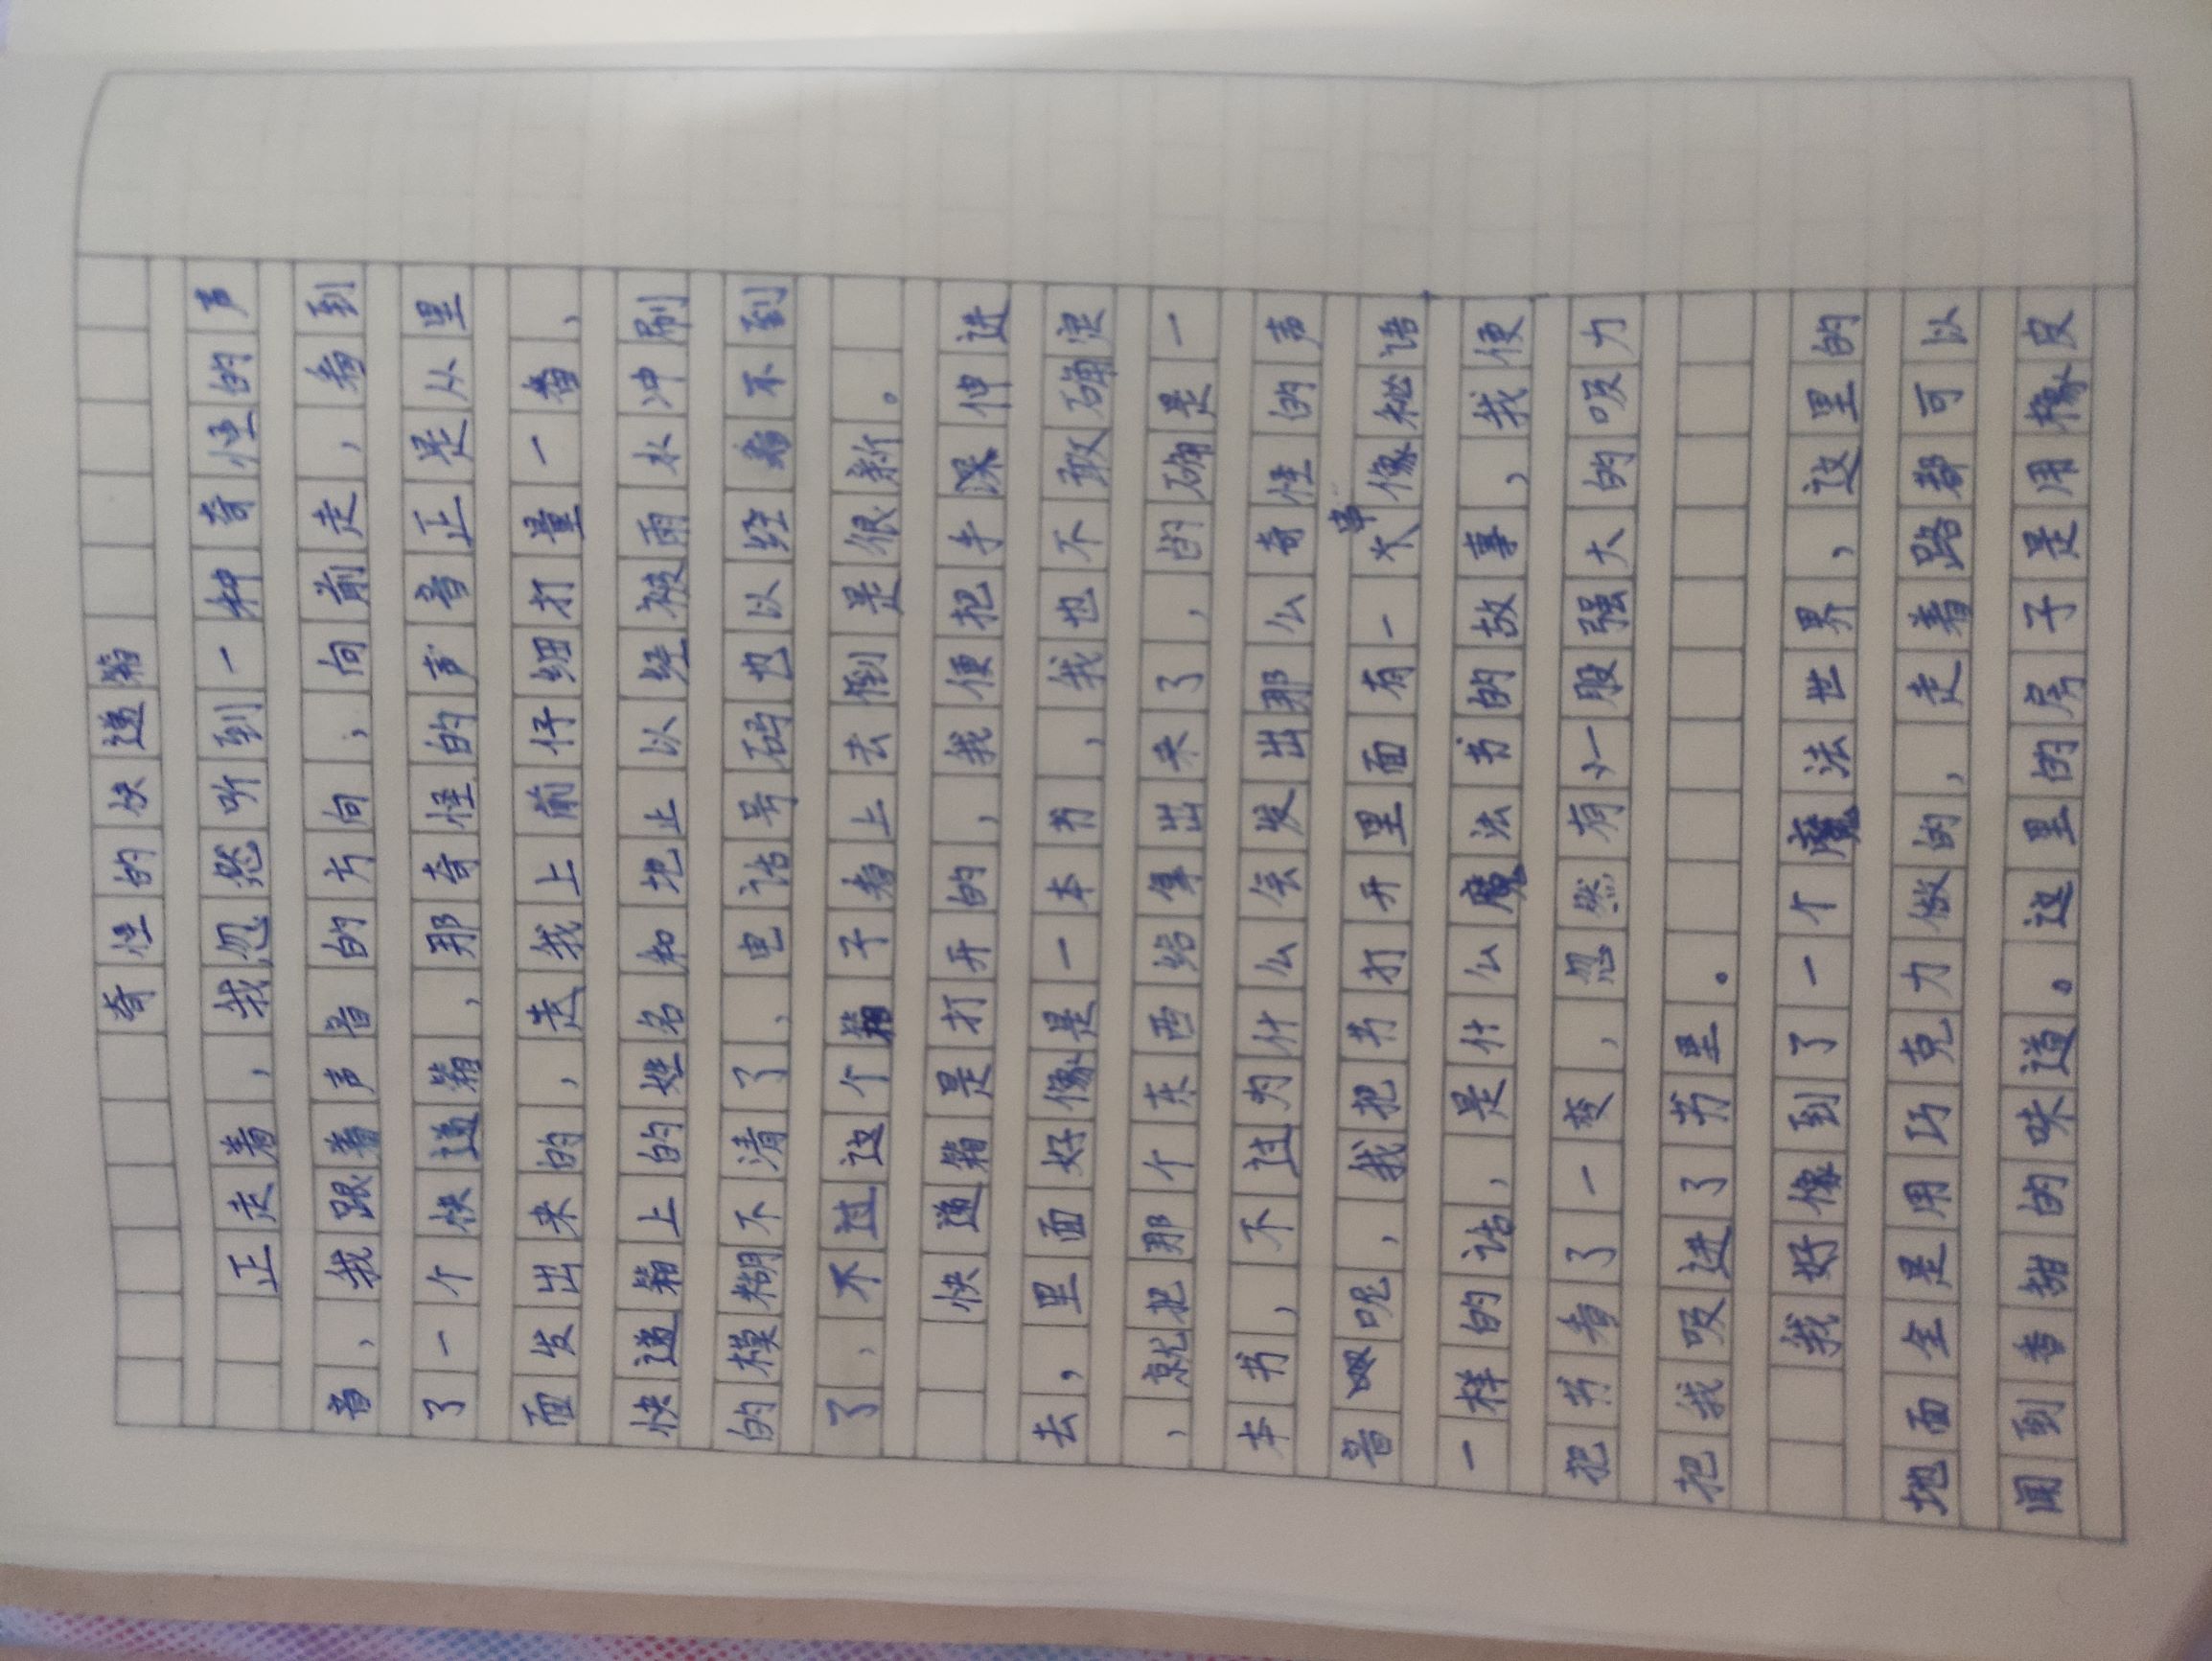 奇怪的快递箱
正走着，我忽然听到一种奇怪的声
音，我跟着声音的方向，向前走，看到
了一个快递箱，那奇怪的声音正是从里
面发出来的，走我上前仔细打量一番，
快递箱上的姓名和地止以经被雨水冲刷
的模糊不清了，电话号码也以经看不到
了，不过这个箱子看上去倒是很新。
快递箱是打开的，我便把手深伸进
去，里面好像是一本书，我也不敢确定
，就把那个东西给拿出来了，的确是一
本书，不过为什么会发出那么奇怪的声
音呢，我把书打开里面有一大串像秘语
一样的话，是什么魔法书的故事，我便
把书看了一变，忽然有一股强大的吸力
把我吸进了书里。
我好像到了一个魔法世界，这里的
地面全是用巧克力做的，走着路都可以
闻到香甜的味道。这里的房子是用橡皮